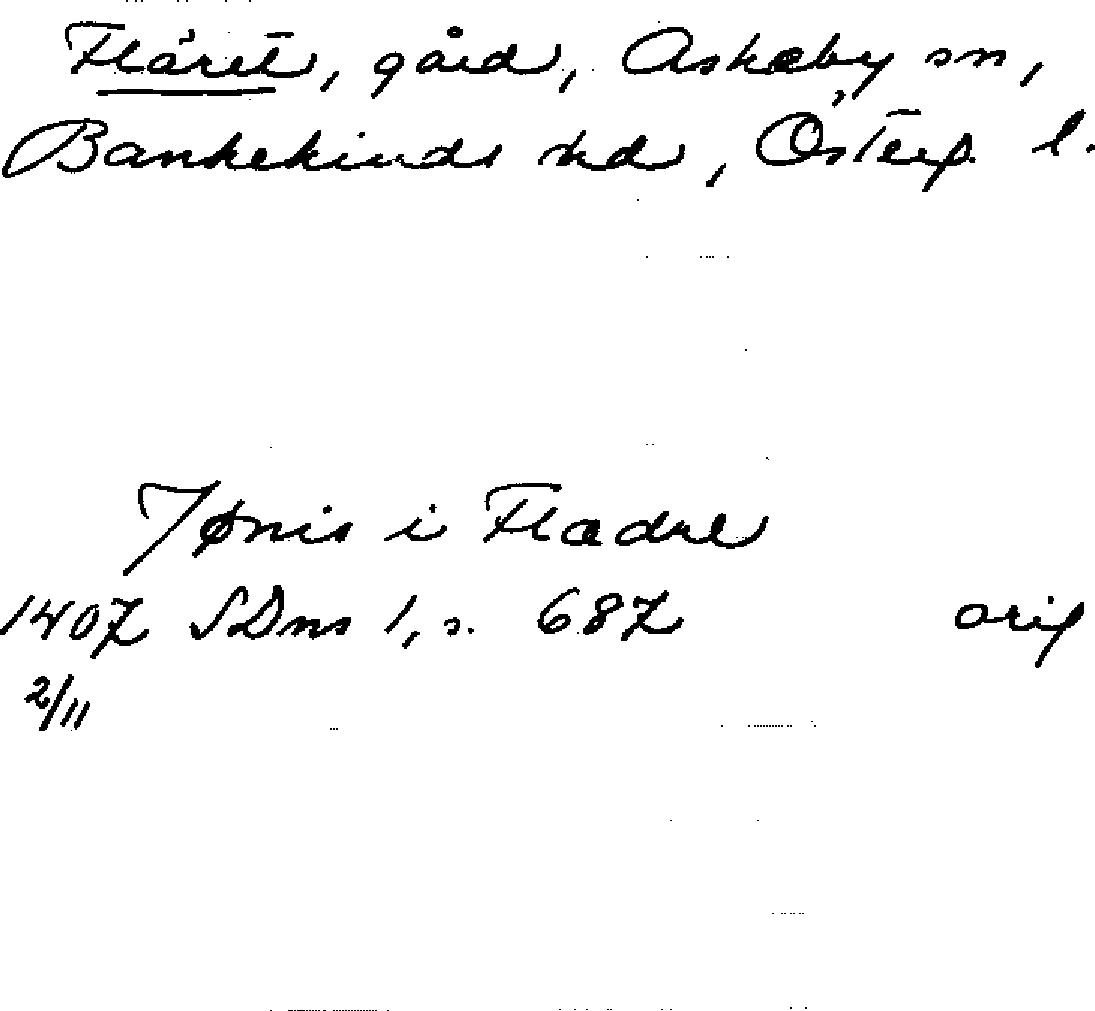 Fläret, gård, Askeby sn,
Bankekinds hd, Österg. l.
Jønis i Flædre
1407 SDns 1, s. 687 orig
2/11